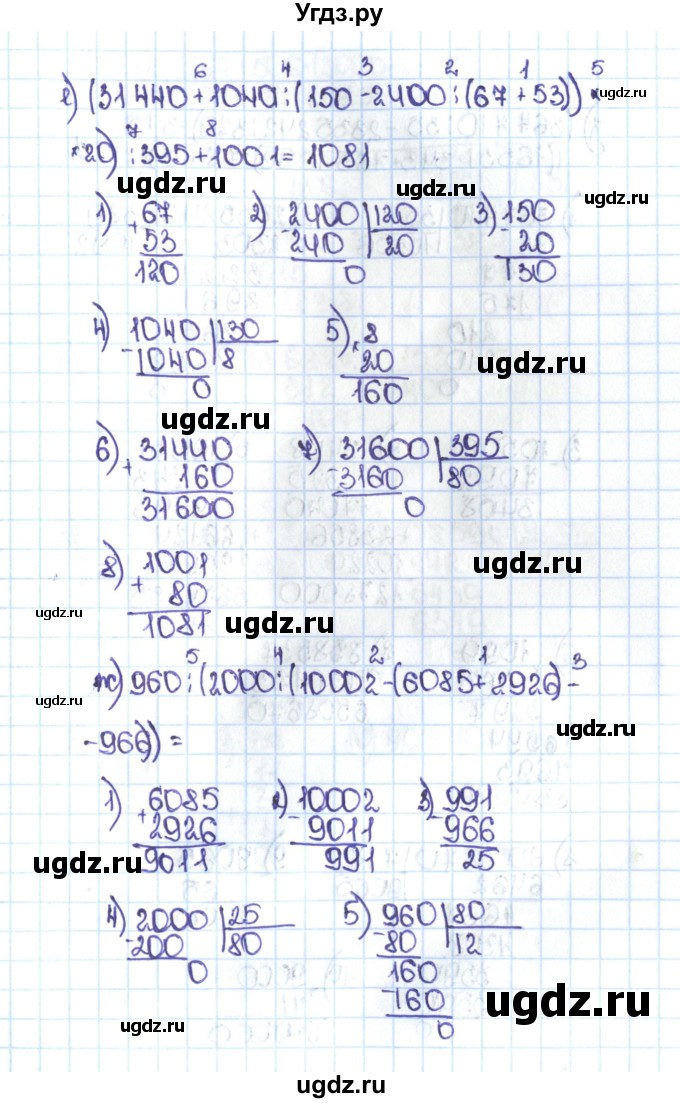 Угдз.ру
6 4 3 2 1 5
е) (31440+1040:(150-2400:(67+53))×
7 8
×20):395+1001=1081
ugdz.ru
ugdz.ru ugdz.ru ugdz.ru
1) +67 2) -2400 |120 3) -150
53 240 |20 20
120 0 130
4) 1040 |130 5) ×8
-1040 |8 20 ugdz.ru
0 160
ugdz.ru
6) 31440 7) 31600 |395
+ 160 -3160 |80
31600 0
8) 1001 ugdz.ru
+ 80
ugdz.ru 1081 ugdz.ru ugdz.ru
5 4 2 1 3
ж) 960:(2000:(10002-(6085+2926)-
ugdz.ru
-966))=
1) +6085 2) -10002 3) -991
2926 9011 966
ugdz.ru 9011 991 25 ugdz.ru
4) 2000 |25 5) 960 |80
-200 |80 -80 |12
0 160
-160 ugdz.ru
ugdz.ru 0
ugdz.ru